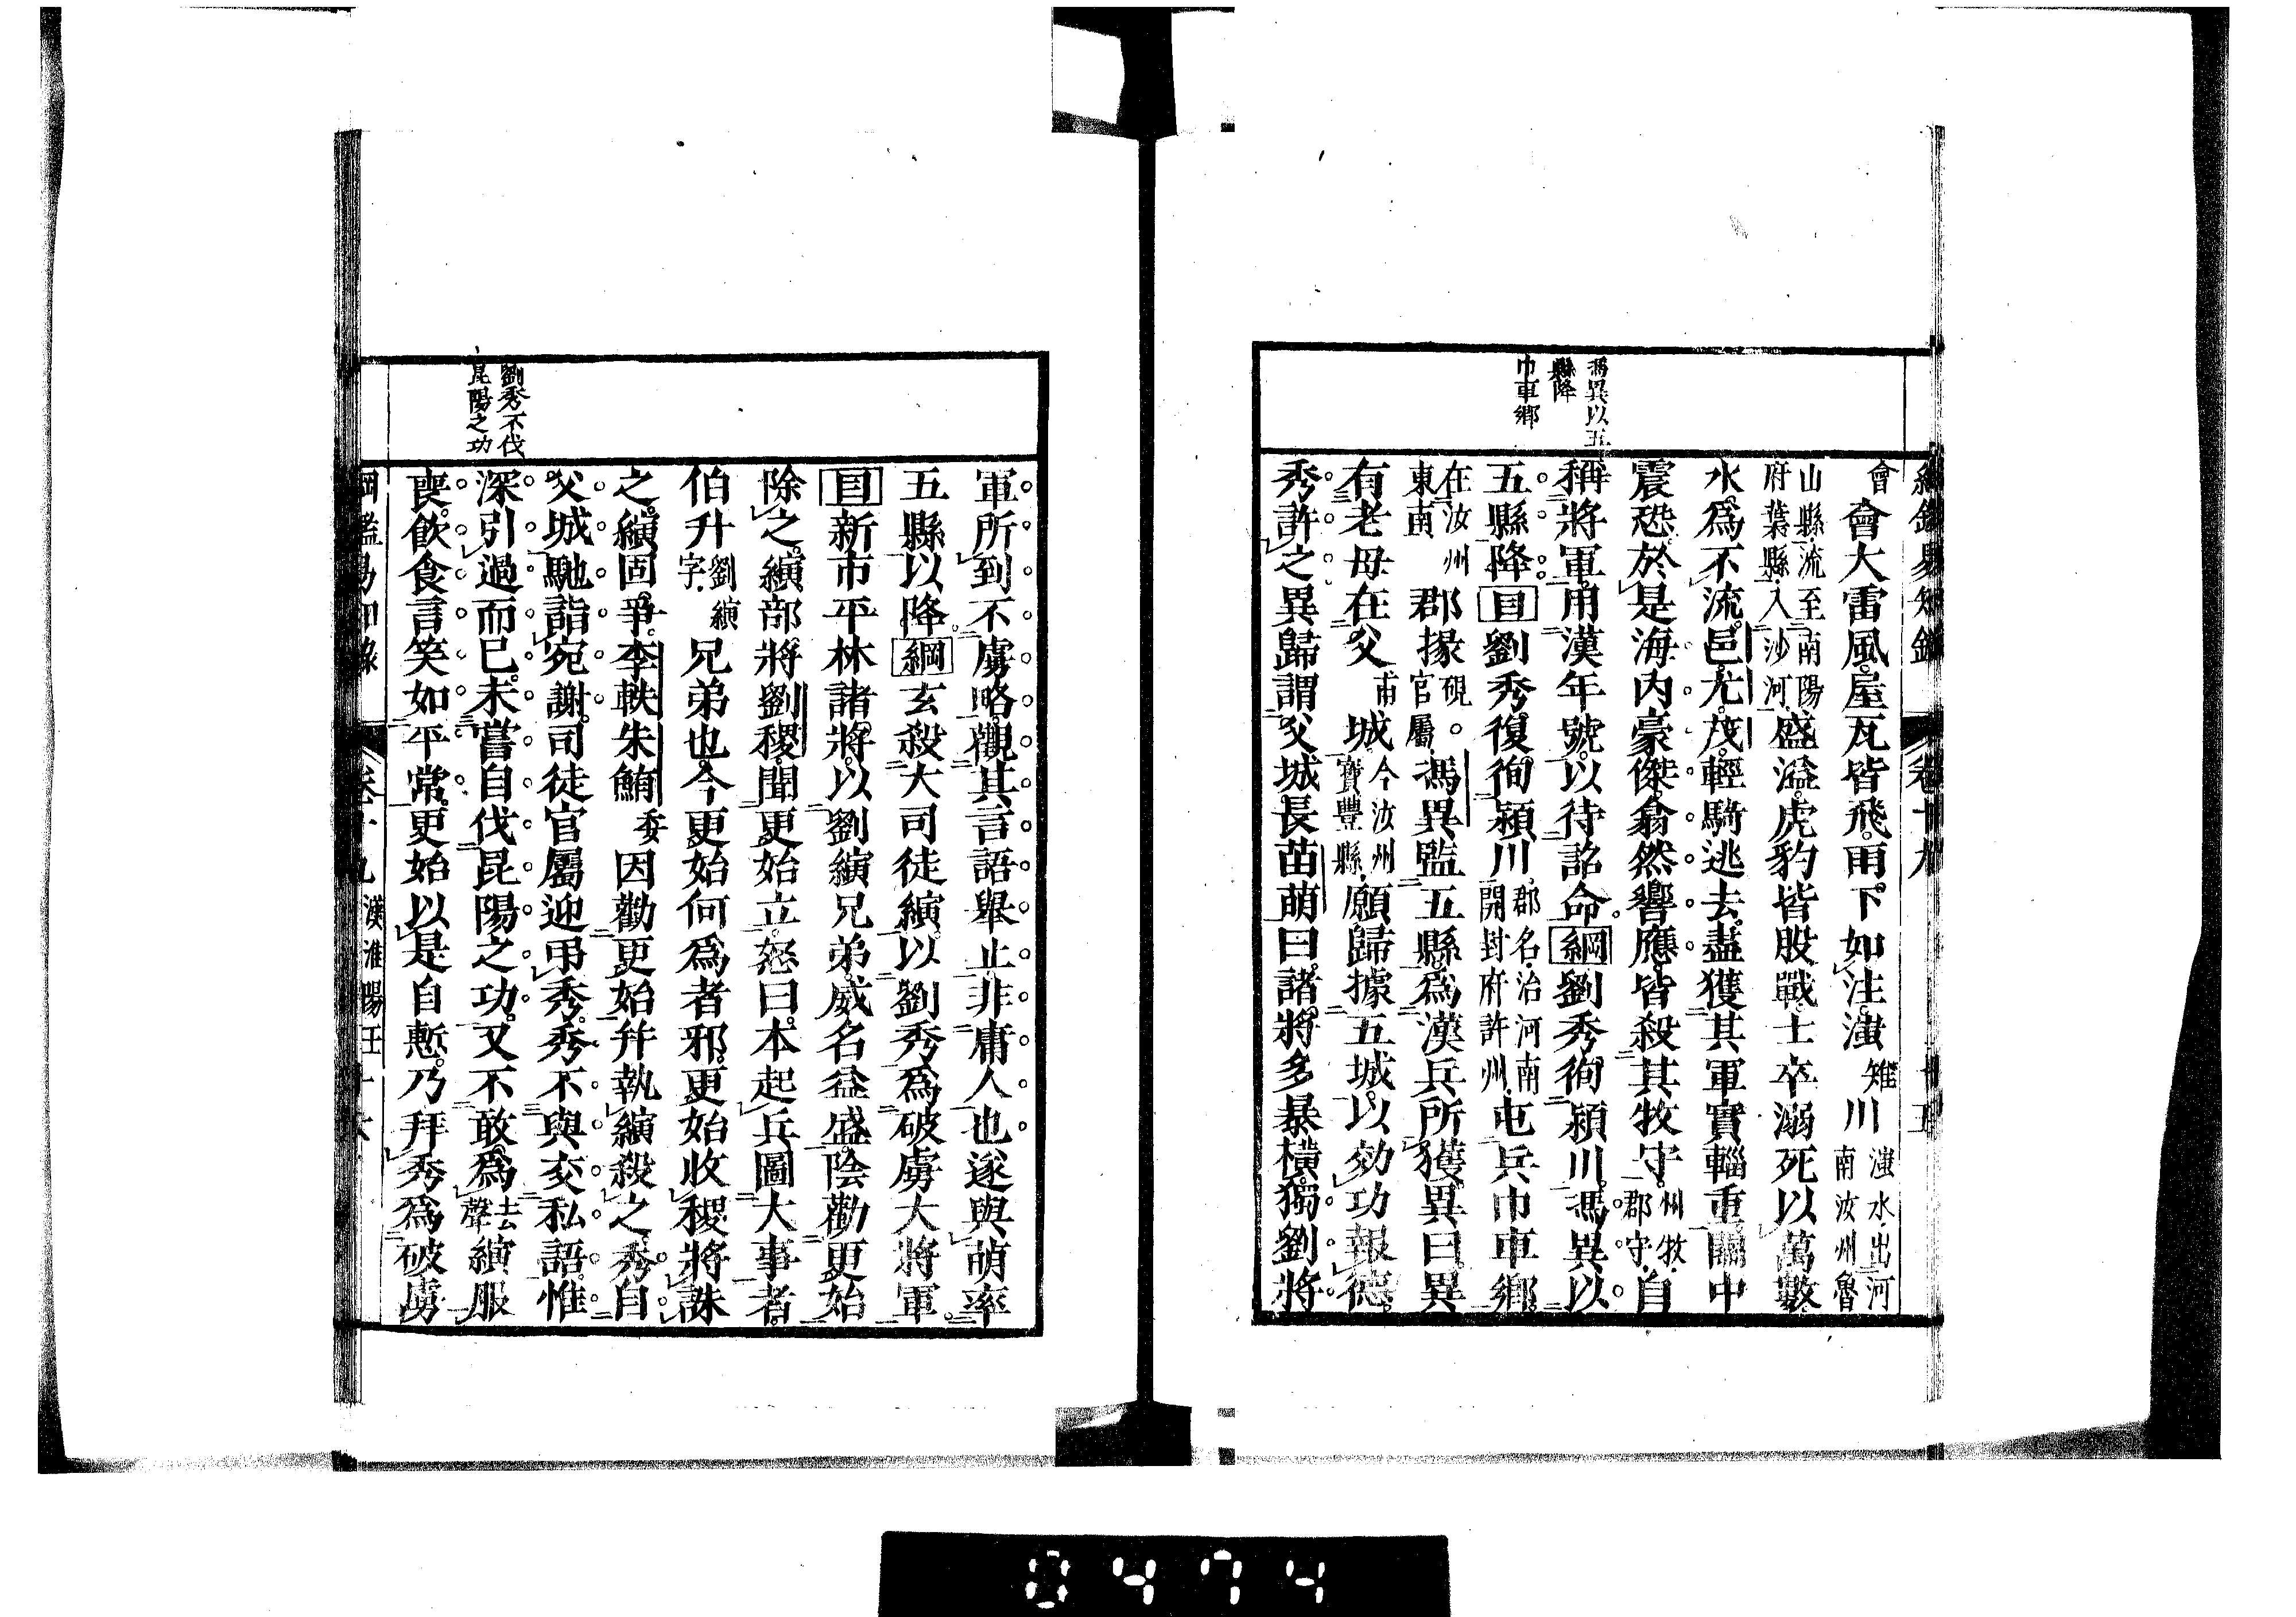 馮異以五
縣降
巾車鄉
綱鑑易知錄 卷十九 十五
會 會大雷風。屋瓦皆飛。雨下如注。滍 雉 川 滍水.出河
南汝州魯
山縣.流至南陽
府葉縣.入沙河 盛溢。虎豹皆股戰。士卒溺死以萬數。
水為不流。邑。尤。茂。輕騎逃去。盡獲其軍實輜重。關中
震恐。於是海內豪傑。翕然響應。皆殺其牧守。州牧.
郡守. 自
稱將軍。用漢年號。以待詔命。綱劉秀徇潁川。馮異以
五縣降。目劉秀復徇潁川。郡名.治河南
開封府許州. 屯兵巾車鄉。
在汝州
東南 郡掾 硯。
官屬. 馮異監五縣。為漢兵所獲。異曰。異
有老母在父 甫 城。今汝州
寶豐縣. 願歸據五城。以効功報德。
秀許之。異歸謂父城長苗萌曰。諸將多暴橫。獨劉將
軍所到不虜略。觀其言語舉止非庸人也。遂與萌率
五縣以降。綱玄殺大司徒縯。以劉秀為破虜大將軍。
目新市平林諸將。以劉縯兄弟威名益盛。陰勸更始
除之。縯部將劉稷。聞更始立。怒曰。本起兵圖大事者。
伯升 劉縯
字. 兄弟也。今更始何為者邪。更始收稷將誅
之。縯固爭。李軼朱鮪 委 因勸更始幷執縯殺之。秀自
父城馳詣宛謝。司徒官屬迎弔秀。秀不與交私語。惟
深引過而已。未嘗自伐昆陽之功。又不敢為 去
聲 縯服
喪。飲食言笑如平常。更始以是自慙。乃拜秀為破虜
綱鑑易知錄 卷十九 漢淮陽王 十六
劉秀不伐
昆陽之功
0474